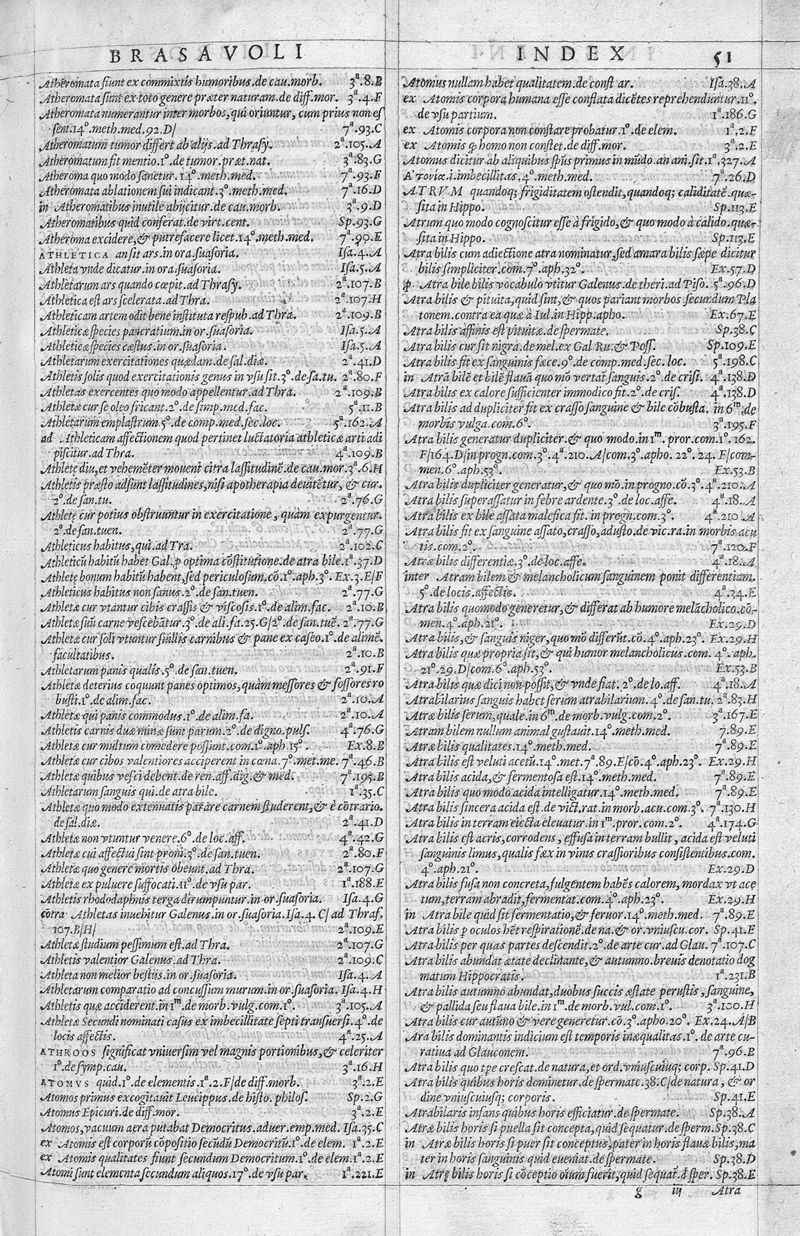 BRASAVOLI
Atheromata fiunt ex commixtis humoribus.de cau.morb. 3ª.8.B
Atheromata sunt ex toto genere præter naturam.de diff.mor. 3ª.4.F
Atheromata numerantur inter morbos,qui oriuntur, cum prius non es
sent.14º.meth.med.92.D/ 7ª.93.C
Atheromatum tumor differt ab alijs.ad Thrasy. 2ª.105.A
Atheromatum fit mentio.1º.de tumor.præt.nat. 3ª.83.G
Atheroma quo modo sanetur.14º.meth.med. 7ª.93.F
Atheromata ablationem sui indicant.3º.meth.med. 7ª.16.D
in Atheromatibus inutile abijcitur.de cau.morb. 3ª.9.D
Atheromatibus quid conferat.de virt.cent. Sp.93.G
Atheroma excidere,& putrefacere licet.14º.meth.med. 7ª.90.E
ATHLETICA an sit ars.in ora.suasoria. Isa.4.A
Athleta vnde dicatur.in ora.suasoria. Isa.5.A
Athletarum ars quando cœpit.ad Thrasy. 2ª.107.B
Athletica est ars scelerata.ad Thra. 2ª.107.H
Athleticam artem odit bene instituta respub.ad Thra. 2ª.109.B
Athleticæ species pancratium.in or.suasoria. Isa.5.A
Athleticæ species cæstus.in or.suasoria. Isa.5.A
Athletarum exercitationes quædam.de sal.diæ. 2ª.41.D
Athletis solis quod exercitationis genus in vsu sit.3º.de sa.tu. 2ª.80.F
Athletas exercentes quo modo appellentur.ad Thra. 2ª.109.B
Athletæ cur se oleo fricant.2º.de simp.med.fac. 5ª.11.B
Athletarum emplastrum.5º.de comp.med.sec.loc. 5ª.162.A
ad Athleticam affectionem quod pertinet luctatoria athleticæ arti adi
piscitur.ad Thra. 4ª.109.B
Athletę diu,et vehemēter mouent citra lassitudinē.de cau.mor.3ª.6.H
Athletis præsto adsunt lassitudines,nisi apotherapia deuitētur, & cur.
2º.de san.tu. 2ª.76.G
Athletę cur potius obstruuntur in exercitatione, quàm expurgentur.
2º.de san.tuen. 2ª.77.G
Athleticus habitus,qui.ad Tra. 2ª.102.C
Athleticū habitū habet Gal.ꝑ optima cōstitutione.de atra bile.1ª.37.D
Athletę bonum habitū habent,sed periculosum.cō.1º.aph.3º. Ex.3.E/F
Athleticus habitus non sanus.2º.de san.tuen. 2ª.77.G
Athletæ cur vtantur cibis crassis & viscosis.1º.de alim.fac. 2ª.10.B
Athletæ suū carne vescebātur.3º.de ali.fa.25.G/2º.de san.tuē. 2ª.77.G
Athletæ cur soli vtuntur suillis carnibus & pane ex caseo.1º.de alimē.
facultatibus. 2ª.10.B
Athletarum panis qualis.5º.de san.tuen. 2ª.91.F
Athletæ deterius coquunt panes optimos,quàm messores & fossores ro
busti.1º.de alim.fac. 2ª.10.A
Athletæ qui panis commodus.1º.de alim.fa. 2ª.10.A
Athletis carnis duæ minæ sunt parum.2º.de digno.puls. 4ª.76.G
Athletæ cur multum comedere possunt.com.1º.aph 15º. Ex.8.B
Athletæ cur cibos valentiores acciperent in cœna.7º.met.me. 7ª.46.B
Athletæ quibus vesci debent.de ren.aff.dig.& med. 7ª.195.B
Athletarum sanguis qui.de atra bile. 1ª.35.C
Athletæ quo modo extenuatis parare carnem studerent,& è cōtrario.
de sal.diæ. 2ª.41.D
Athletæ non vtuntur venere.6º.de loc.aff. 4ª.42.G
Athletæ cui affectui sint proni.3º.de san.tuen. 2ª.80.F
Athletæ quo genere mortis obeunt.ad Thra. 2ª.107.G
Athletæ ex puluere suffocati.11º.de vsu par. 1ª.188.E
Athletis rhododaphnis terga dirumpuntur.in or.suasoria. Isa.4.G
cōtra Athletas inuehitur Galenus.in or suasoria.Isa.4.C/ ad Thras.
107.B/H/ 2ª.109.E
Athletæ studium pessimum est.ad Thra. 2ª.107.G
Athletis valentior Galenus.ad Thra. 2ª.109.C
Athleta non melior bestijs.in or.suasoria. Isa.4.A
Athletarum comparatio ad concussum murum.in or.suasoria. Isa.4.H
Athletis quæ acciderent.in 1ᵐ.de morb.vulg.com.1º. 3ª.105.A
Athletæ Secundi nominati casus ex imbecillitate septi transuersi.4º.de
locis affectis. 4ª.25.A
ATHROOS significat vniuersim vel magnis portionibus,& celeriter
1º.de symp.cau. 3ª.16.H
ATOMVS quid.1º.de elementis.1ª.2.F/de diff.morb. 3ª.2.E
Atomos primus excogitauit Leucippus.de histo. philos. Sp.2.G
Atomus Epicuri.de diff.mor. 3ª.2.E
Atomos,vacuum aera putabat Democritus.aduer.emp.med. Isa.35.C
ex Atomis est corporū cōpositio secūdū Democritū.1º.de elem. 1ª.2.E
ex Atomis qualitates fiunt secundum Democritum.1º.de elem.1ª.2.E
Atomi sunt elementa secundum aliquos.17º.de vsu par. 1ª.221.E
INDEX 51
Atomus nullam habet qualitatem.de const ar. Isa.38.A
ex Atomis corpora humana esse constata dicētes reprehenduntur.11º.
de vsu partium. 1ª.186.G
ex Atomis corpora non constare probatur.1º.de elem. 1ª.2.F
ex Atomis ꝙ homo non constet.de diff.mor. 3ª.2.E
Atomus dicitur ab aliquibus spūs primus in mūdo.an ani.sit.1ª.327.A
Ατονία.i.imbecillitas.4º.meth.med. 7ª.26.D
ATRVM quandoq; frigiditatem ostendit, quandoq; caliditatē.quæ-
sita in Hippo. Sp.113.E
Atrum quo modo cognoscitur esse à frigido,& quo modo à calido.quæ-
sita in Hippo. Sp.113.E
Atra bilis cum adiectione atra nominatur,sed amara bilis sæpe dicitur
bilis simpliciter.com.7º.aph.32º. Ex.57.D
ꝓ Atra bile bilis vocabulo vtitur Galenus.de theri.ad Piso. 5ª.96.D
Atra bilis & pituita,quid sint,& quos pariant morbos secundum Pla
tonem.contra ea quæ à Iul.in Hipp.apho. Ex.67.E
Atra bilis affinis est pituitæ.de spermate. Sp.38.C
Atra bilis cur sit nigra.de mel.ex Gal Ru.& Poss. Sp.109.E
Atra bilis fit ex sanguinis fæce.9º.de comp.med.sec.loc. 5ª.198.C
in Atrā bilē et bilē flauā quo mō vertat sanguis.2º.de crisi. 4ª.138.D
Atra bilis ex calore sufficienter immodico fit.2º.de cris. 4ª.138.D
Atra bilis ad dupliciter fit ex crasso sanguine & bile cōbusta. in 6ᵐ.de
morbis vulga.com.6º. 3ª.195.F
Atra bilis generatur dupliciter.& quo modo.in 1ᵐ.pror.com.1º.162.
F/164.D/in progn.com.3º.4ª.210.A/com.3º.apho. 22º. 24. F/com-
men.6º.aph.53º. Ex.53.B
Atra bilis dupliciter generatur,& quo mō.in progno.cō.3º. 4ª.210.A
Atra bilis superassatur in febre ardente.3º.de loc.affe. 4ª.18.A
Atra bilis ex bile assata malefica fit. in progn.com.3º. 4ª.210.A
Atra bilis fit ex sanguine assato,crasso,adusto.de vic.ra.in morbis acu
tis.com.2º. 7ª.120.F
Atræ bilis differentiæ.3º.de loc.affe. 4ª.18.A
inter Atram bilem & melancholicum sanguinem ponit differentiam.
5º.de locis.affectis. 4ª.24.E
Atra bilis quomodo generetur,& differat ab humore melācholico.cō-
men.4º.aph.21º. Ex.29.D
Atra bilis,& sanguis niger,quo mō differūt.cō.4º.aph.23º. Ex.29.H
Atra bilis quæ propria sit,& qui humor melancholicus.com. 4º.aph.
21º.29.D/com.6º.aph.53º. Ex.53.B
Atra bilis quæ dici non possit,& vnde fiat. 2º.de lo.aff. 4ª.18.A
Atrabilarius sanguis habet serum atrabilarium. 4º.de san.tu. 2ª.83.H
Atræ bilis serum,quale.in 6ᵐ.de morb.vulg.com.2º. 3ª.167.E
Atram bilem nullum animal gustauit.14º.meth.med. 7.89.E
Atræ bilis qualitates.14º.meth.med. 7ª.89.E
Atra bilis est veluti acetū.14º.met.7ª.89.E/cō.4º.aph.23º. Ex.29.H
Atra bilis acida,& fermentosa est.14º.meth.med. 7ª.89.E
Atra bilis quo modo acida intelligitur.14º.meth.med. 7ª.89.E
Atra bilis sincera acida est.de vict.rat.in morb.acu.com.3º. 7ª.130.H
Atra bilis in terram eiecta eleuatur.in 1ᵐ.pror.com.2º. 4ª.174.G
Atra bilis est acris, corrodens, effusa in terram bullit, acida est veluti
sanguinis limus, qualis fæx in vinis crassioribus consistentibus.com.
4º.aph.21º. Ex.29.D
Atra bilis fusa non concreta,fulgentem habēs calorem,mordax vt ace
tum,terram abradit,fermentat.com.4º.aph.23º. Ex.29.H
in Atra bile quid sit fermentatio,& feruor.14º.meth.med. 7ª.89.E
Atra bilis ꝑ oculos hēt respirationē.de na.& or.vniuscu.cor. Sp.41.E
Atra bilis per quas partes descendit.2º.de arte cur.ad Glau. 7ª.107.C
Atra bilis abundat ætate declinante,& autumno.breuis denotatio dog
matum Hippocratis. 1ª.231.B
Atra bilis autumno abundat,duobus succis æstate perustis,sanguine,
& pallida seu flaua bile.in 1ᵐ.de morb.vul.com.1º. 3ª.120.H
Atra bilis cur autūno & vere generetur.cō.3º.apho.20º. Ex.24.A/B
Ara bilis dominantis indicium est temporis inæqualitas.1º. de arte cu-
ratiua ad Glauconem. 7ª.96.B
Atra bilis quo tpe crescat.de natura,et ord.vniuscuiusq; corp. Sp.41.D
Atra bilis quibus horis dominetur.de spermate.38.C/de natura, & or
dine vniuscuiusq; corporis. Sp.41.E
Atrabilaris insans quibus horis efficiatur.de spermate. Sp.38.A
Atræ bilis horis si puella sit concepta,quid sequatur.de sperm. Sp.38.C
in Atræ bilis horis si puer sit conceptus,pater in horis flauæ bilis,ma
ter in horis sanguinis quid eueniat.de spermate. Sp.38.D
in Atrę bilis horis si cōceptio oīum fuerit,quid sequať.d sper. Sp.38.E
g iij Atra